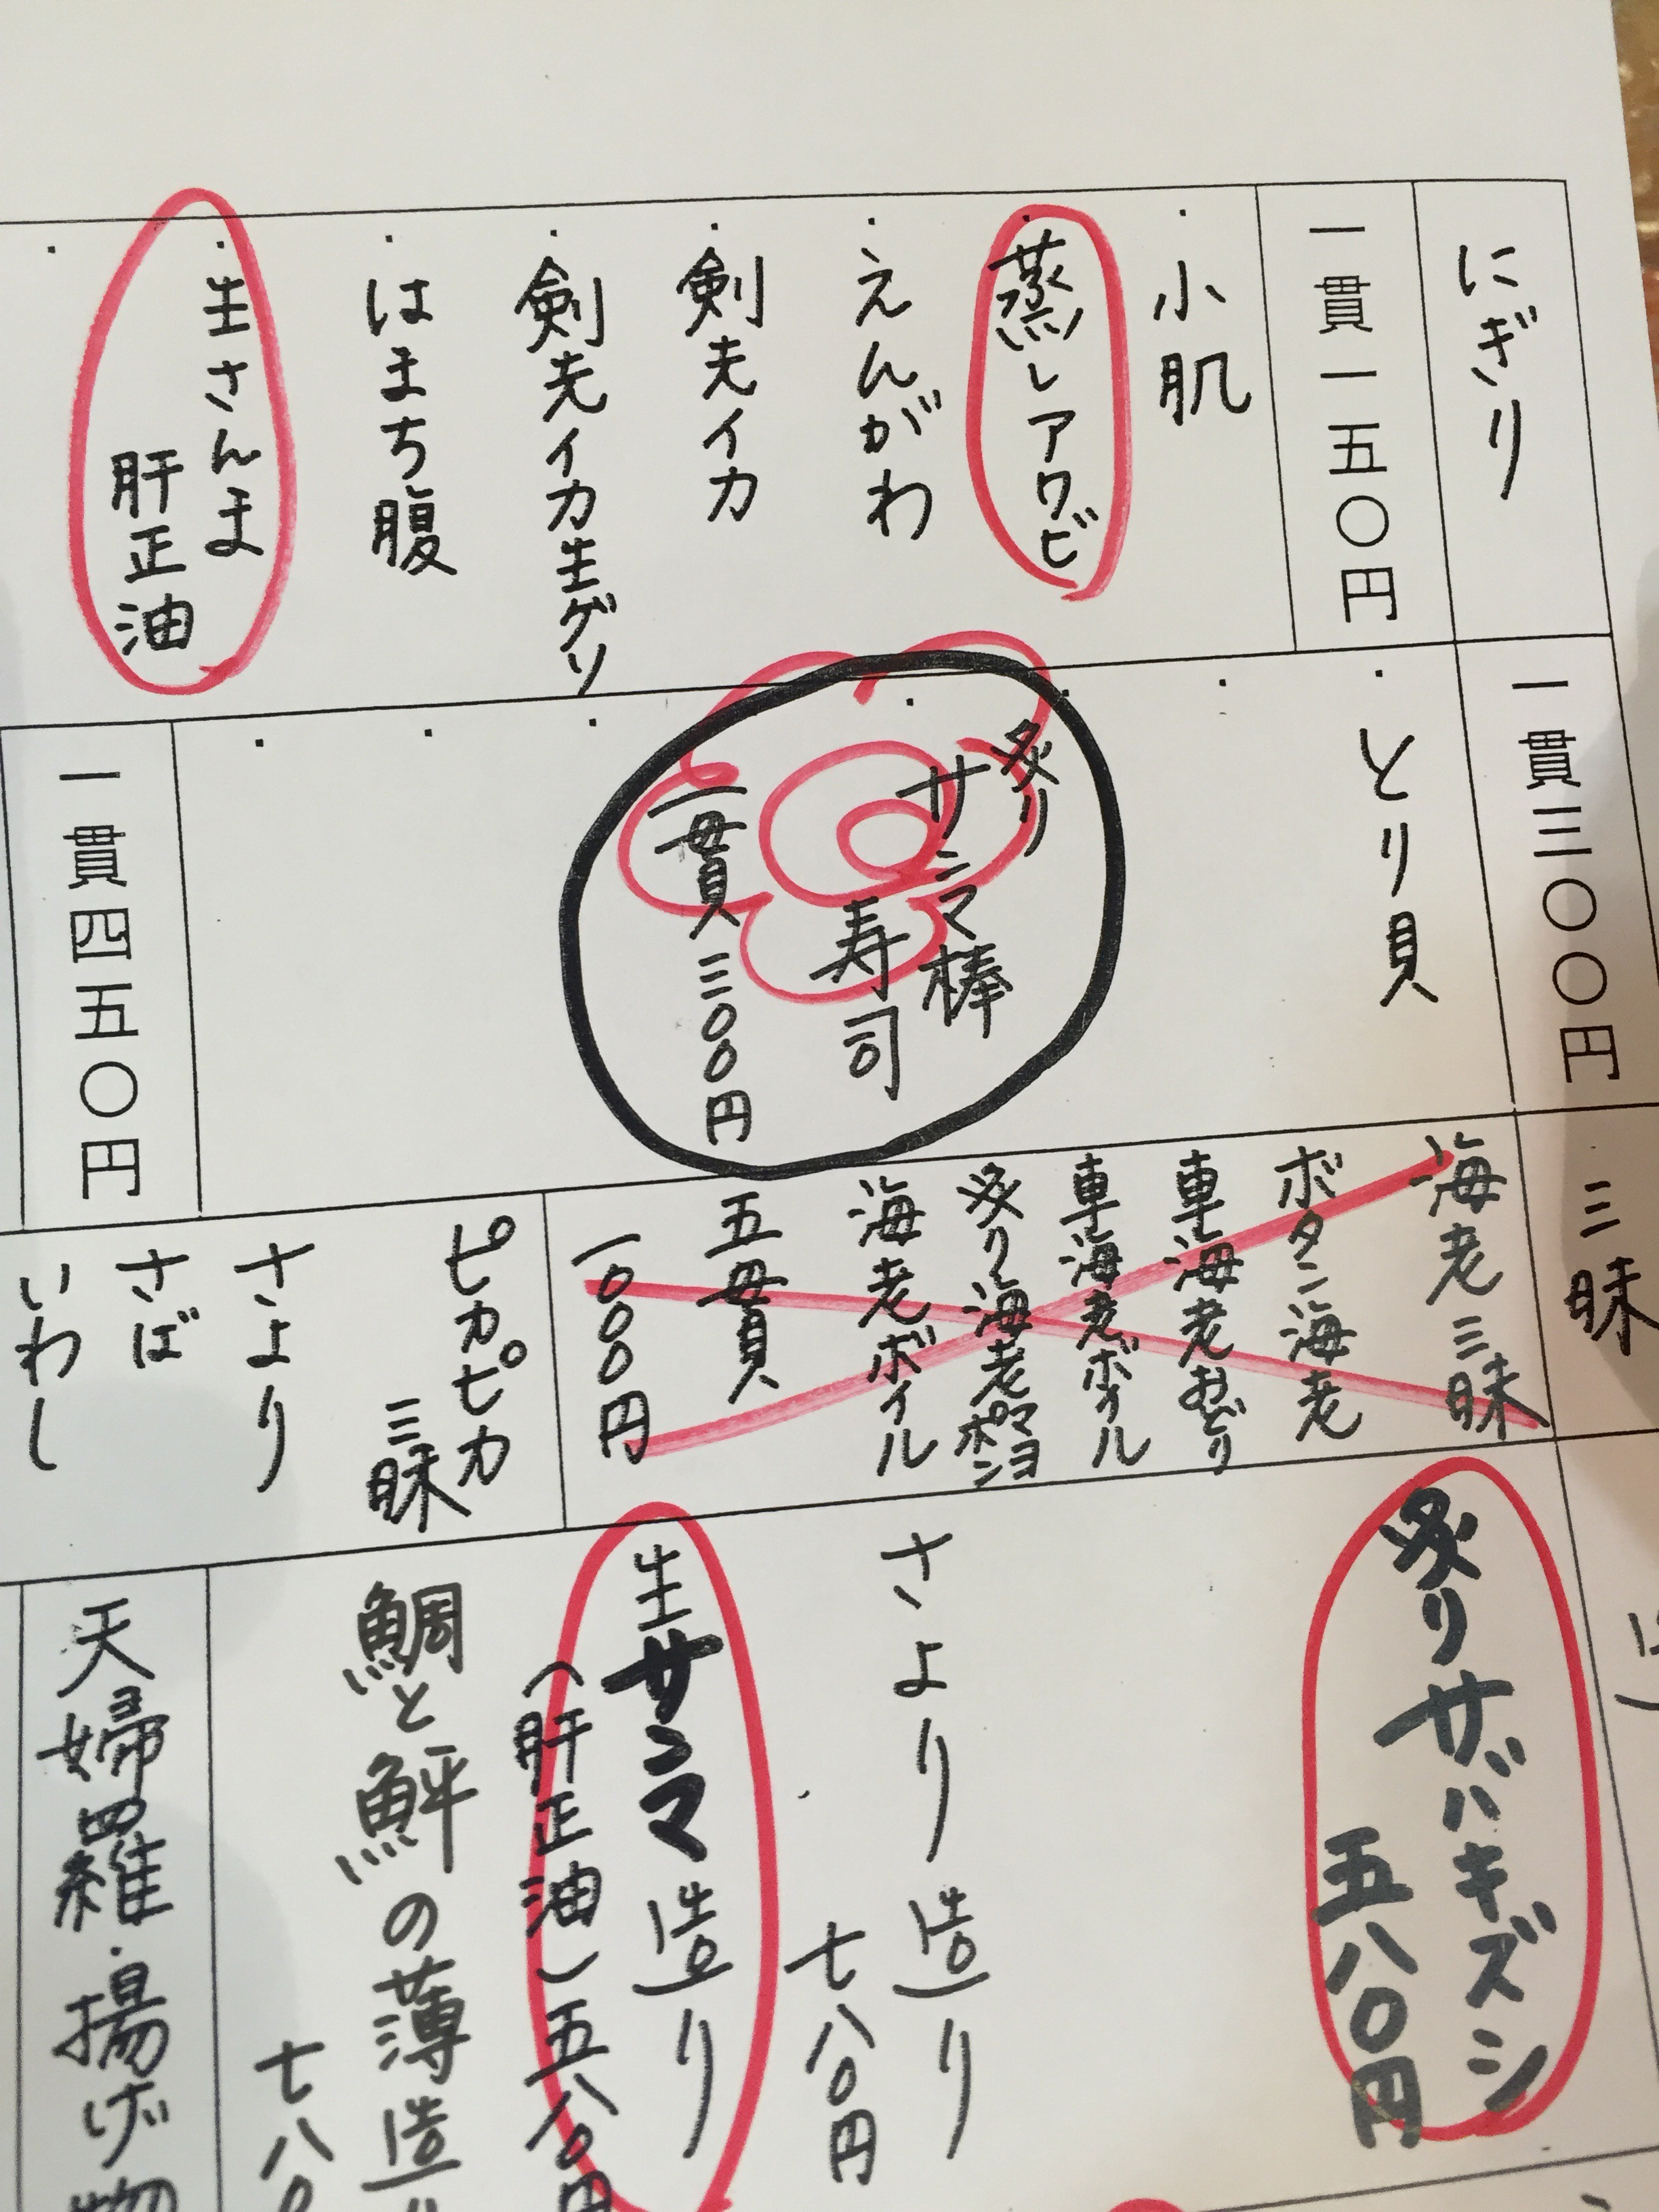 にぎり
一貫一五〇円
・小肌
・蒸しアワビ
・えんがわ
・剣先イカ
・剣先イカ生ゲソ
・はまち腹
・生さんま
肝正油
一貫三〇〇円
・とり貝
炙り
サンマ棒
寿司
一貫三〇〇円
一貫四五〇円
三昧
海老三昧
ボタン海老
車海老おどり
車海老ボイル
炙り海老マヨポン
海老ボイル
五貫
一〇〇〇円
ピカピカ
三昧
さより
さば
いわし
炙りサバキズシ
五八〇円
さより造り
七八〇円
生サンマ造り
(肝正油)五八〇円
鯛と鮃の薄造り
七八〇
天婦羅・揚げ物